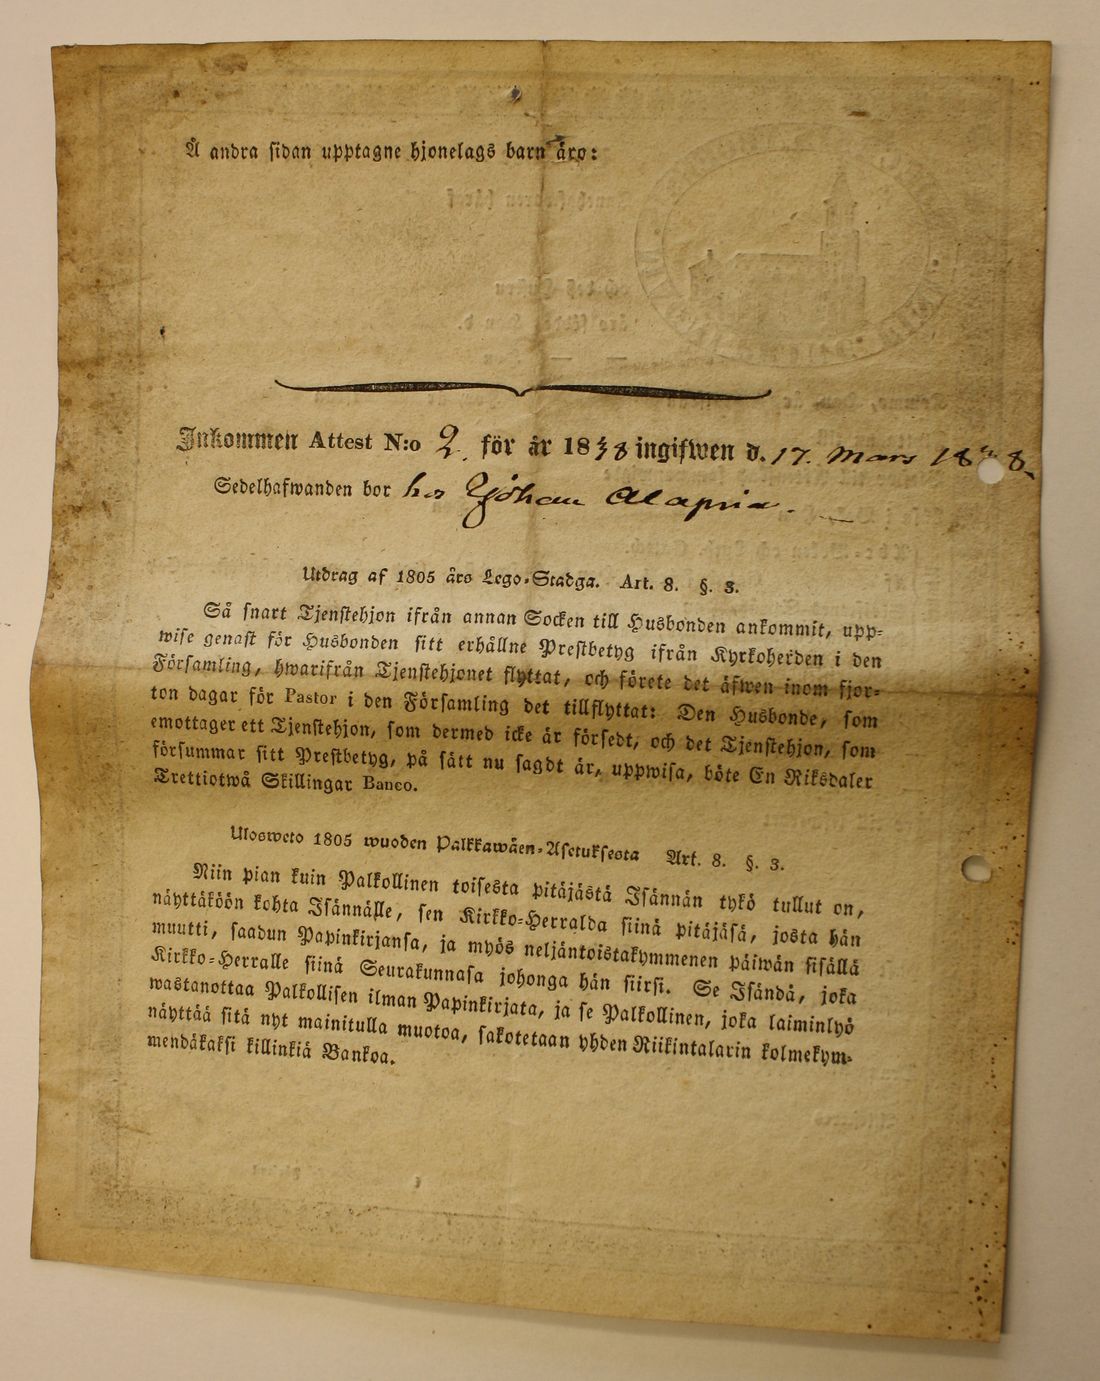 Å andra sidan upptagne hjonelags barn äro:
Inkommen Attest N:o 2. för år 1838 ingifwen d. 17. Mars 18 8.
Sedelhafwanden bor hos Johan Alapria.
Utdrag af 1805 års Lego-Stadga. Art. 8. §. 3.
Så snart Tjenstehjon ifrån annan Socken till Husbonden ankommit, upp-
wise genast för Husbonden sitt erhållne Prestbetyg ifrån Kyrkoherden i den
Församling, hwarifrån Tjenstehjonet flyttat, och förete det äfwen inom fjor-
ton dagar för Pastor i den Församling det tillflyttat: Den Husbonde, som
emottager ett Tjenstehjon, som dermed icke är försedt, och det Tjenstehjon, som
försummar sitt Prestbetyg, på sätt nu sagdt är, uppwisa, böte En Riksdaler
Trettiotwå Skillingar Banco.
Ulosweto 1805 wuoden Palkkawäen-Asetuksesta Art. 8. §. 3.
Niin pian kuin Palkollinen toisesta pitäjästä Isännän tykö tullut on,
näyttäköön kohta Isännälle, sen Kirkko-Herralda siinä pitäjäsä, josta hän
muutti, saadun Papinkirjansa, ja myös neljäntoistakymmenen päiwän sisällä
Kirkko-Herralle siinä Seurakunnasa johonga hän siirsi. Se Isändä, joka
wastanottaa Palkollisen ilman Papinkirjata, ja se Palkollinen, joka laiminlyö
näyttää sitä nyt mainitulla muotoa, sakotetaan yhden Riikintalarin kolmekym-
mendäkaksi killinkiä Bankoa.